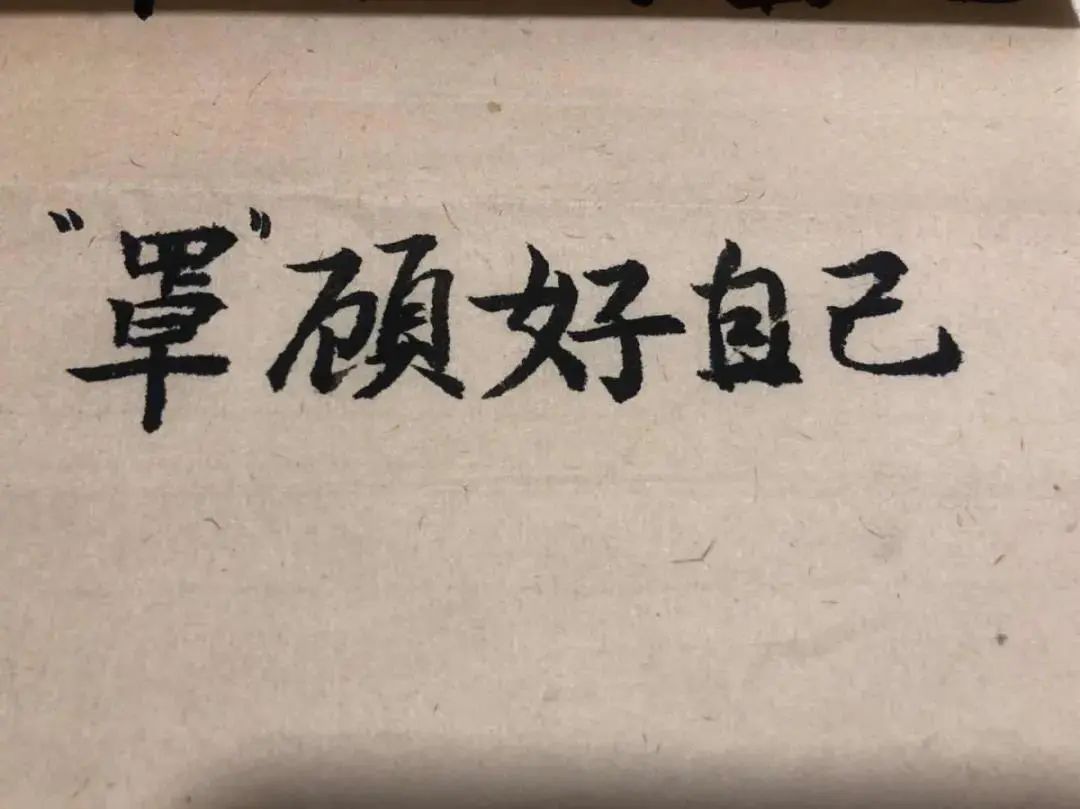 "罩"顾好自己